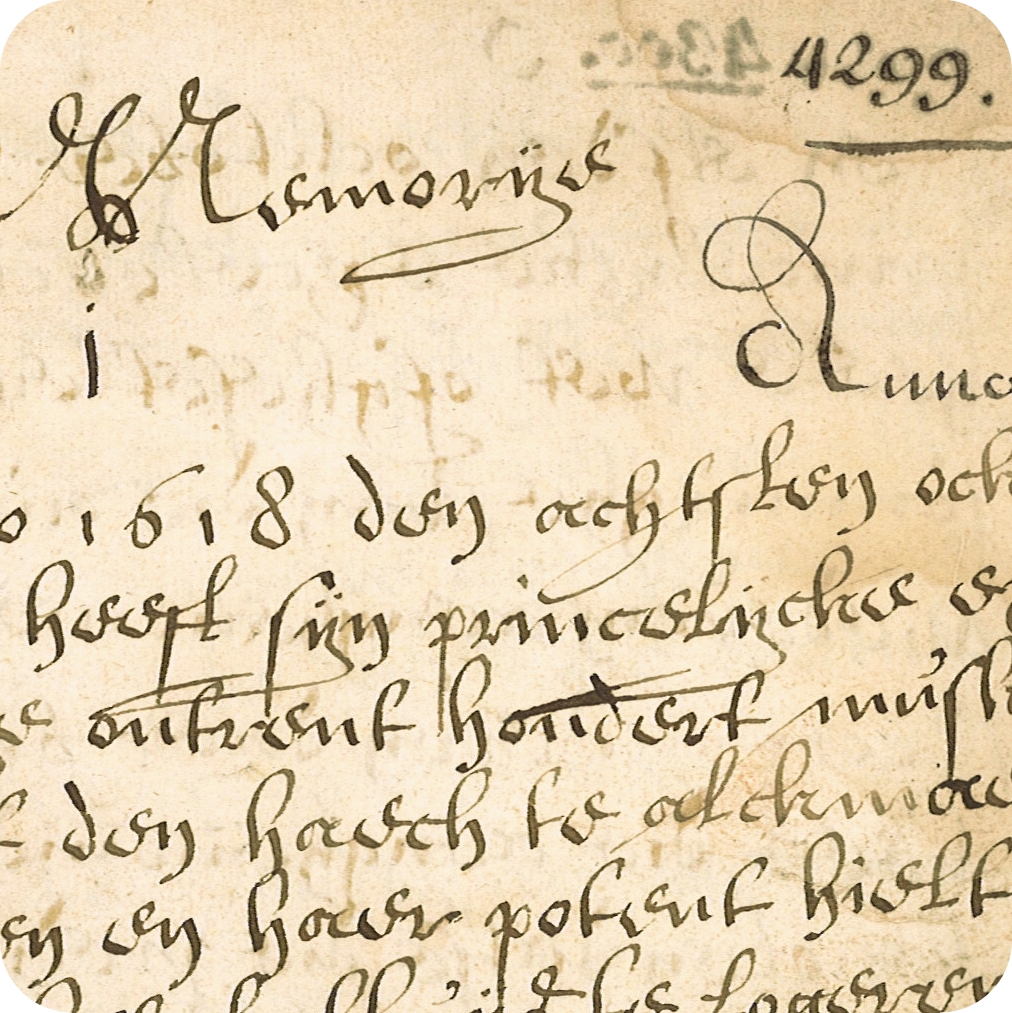 4299.
Memorije
i
Anno
1618 den achtsten ock
heeft sijn princelijcke e
omtrent hondert musk
den haech te alckmae
en en haer potent hielt
te logeren